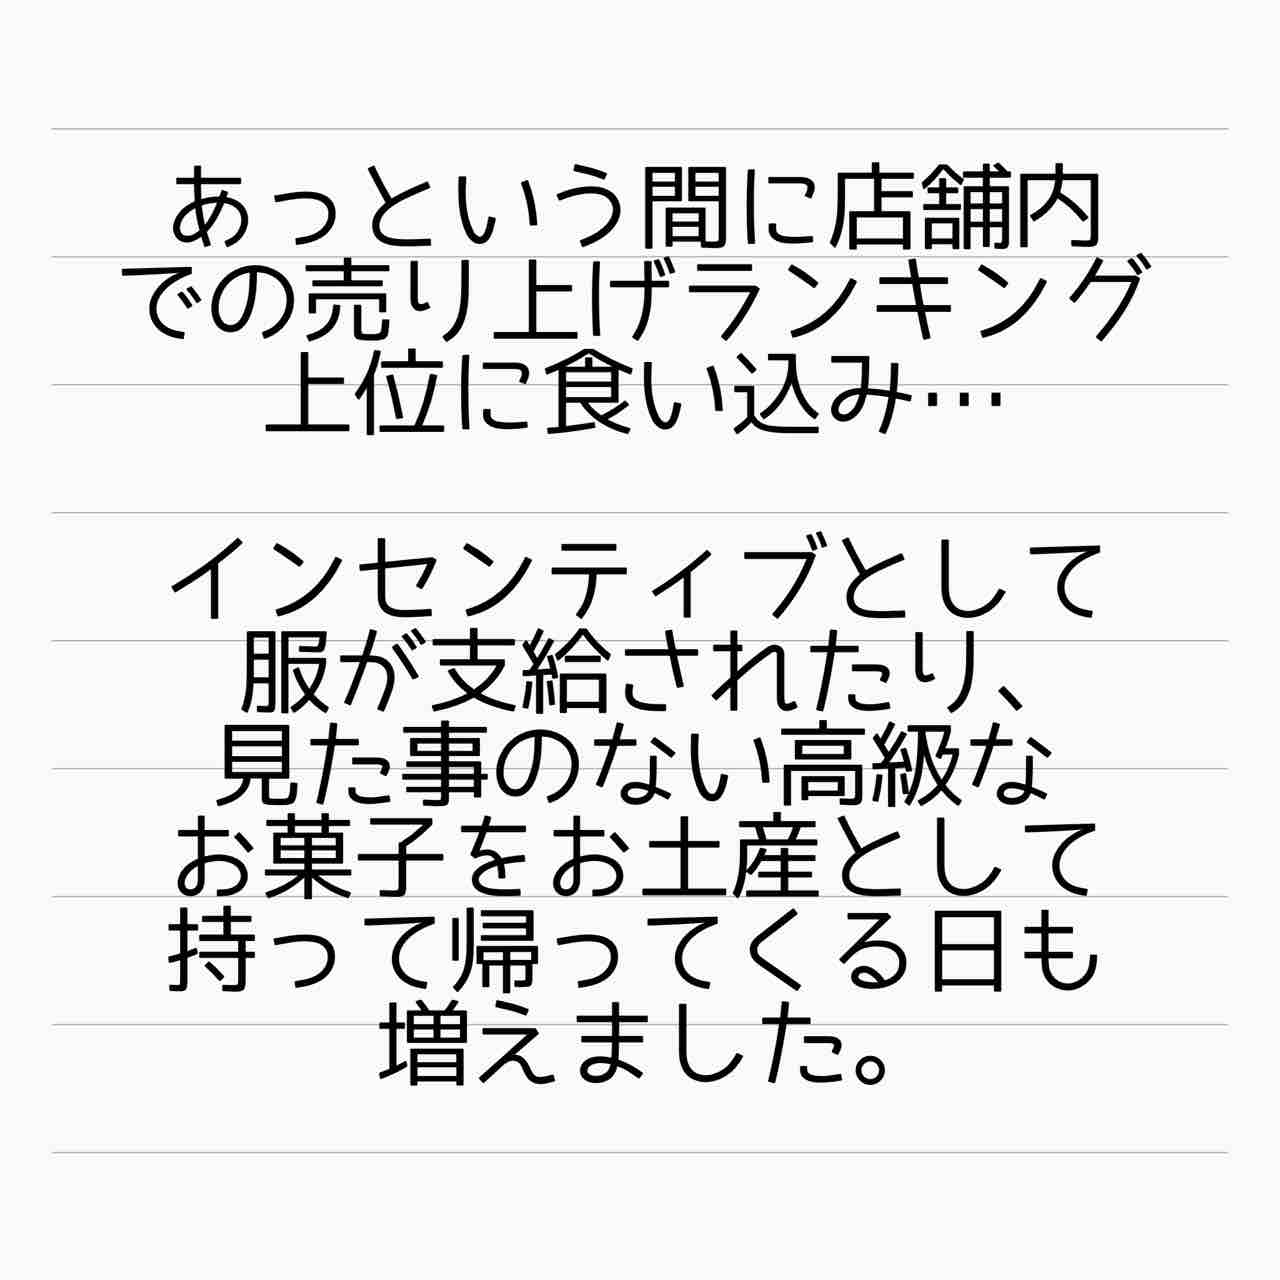 あっという間に店舗内
での売り上げランキング
上位に食い込み…
インセンティブとして
服が支給されたり、
見た事のない高級な
お菓子をお土産として
持って帰ってくる日も
増えました。